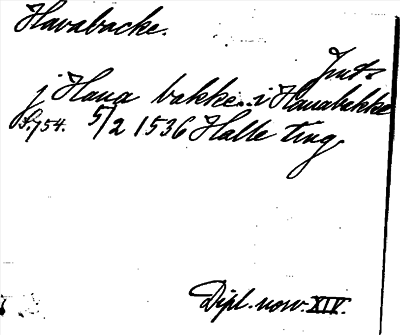 Havabacke.
Juds
j Hana bakke.. i Hanabakke
S. 754. 5/2 1536 Halle ting
Dipl. norv. XIV.